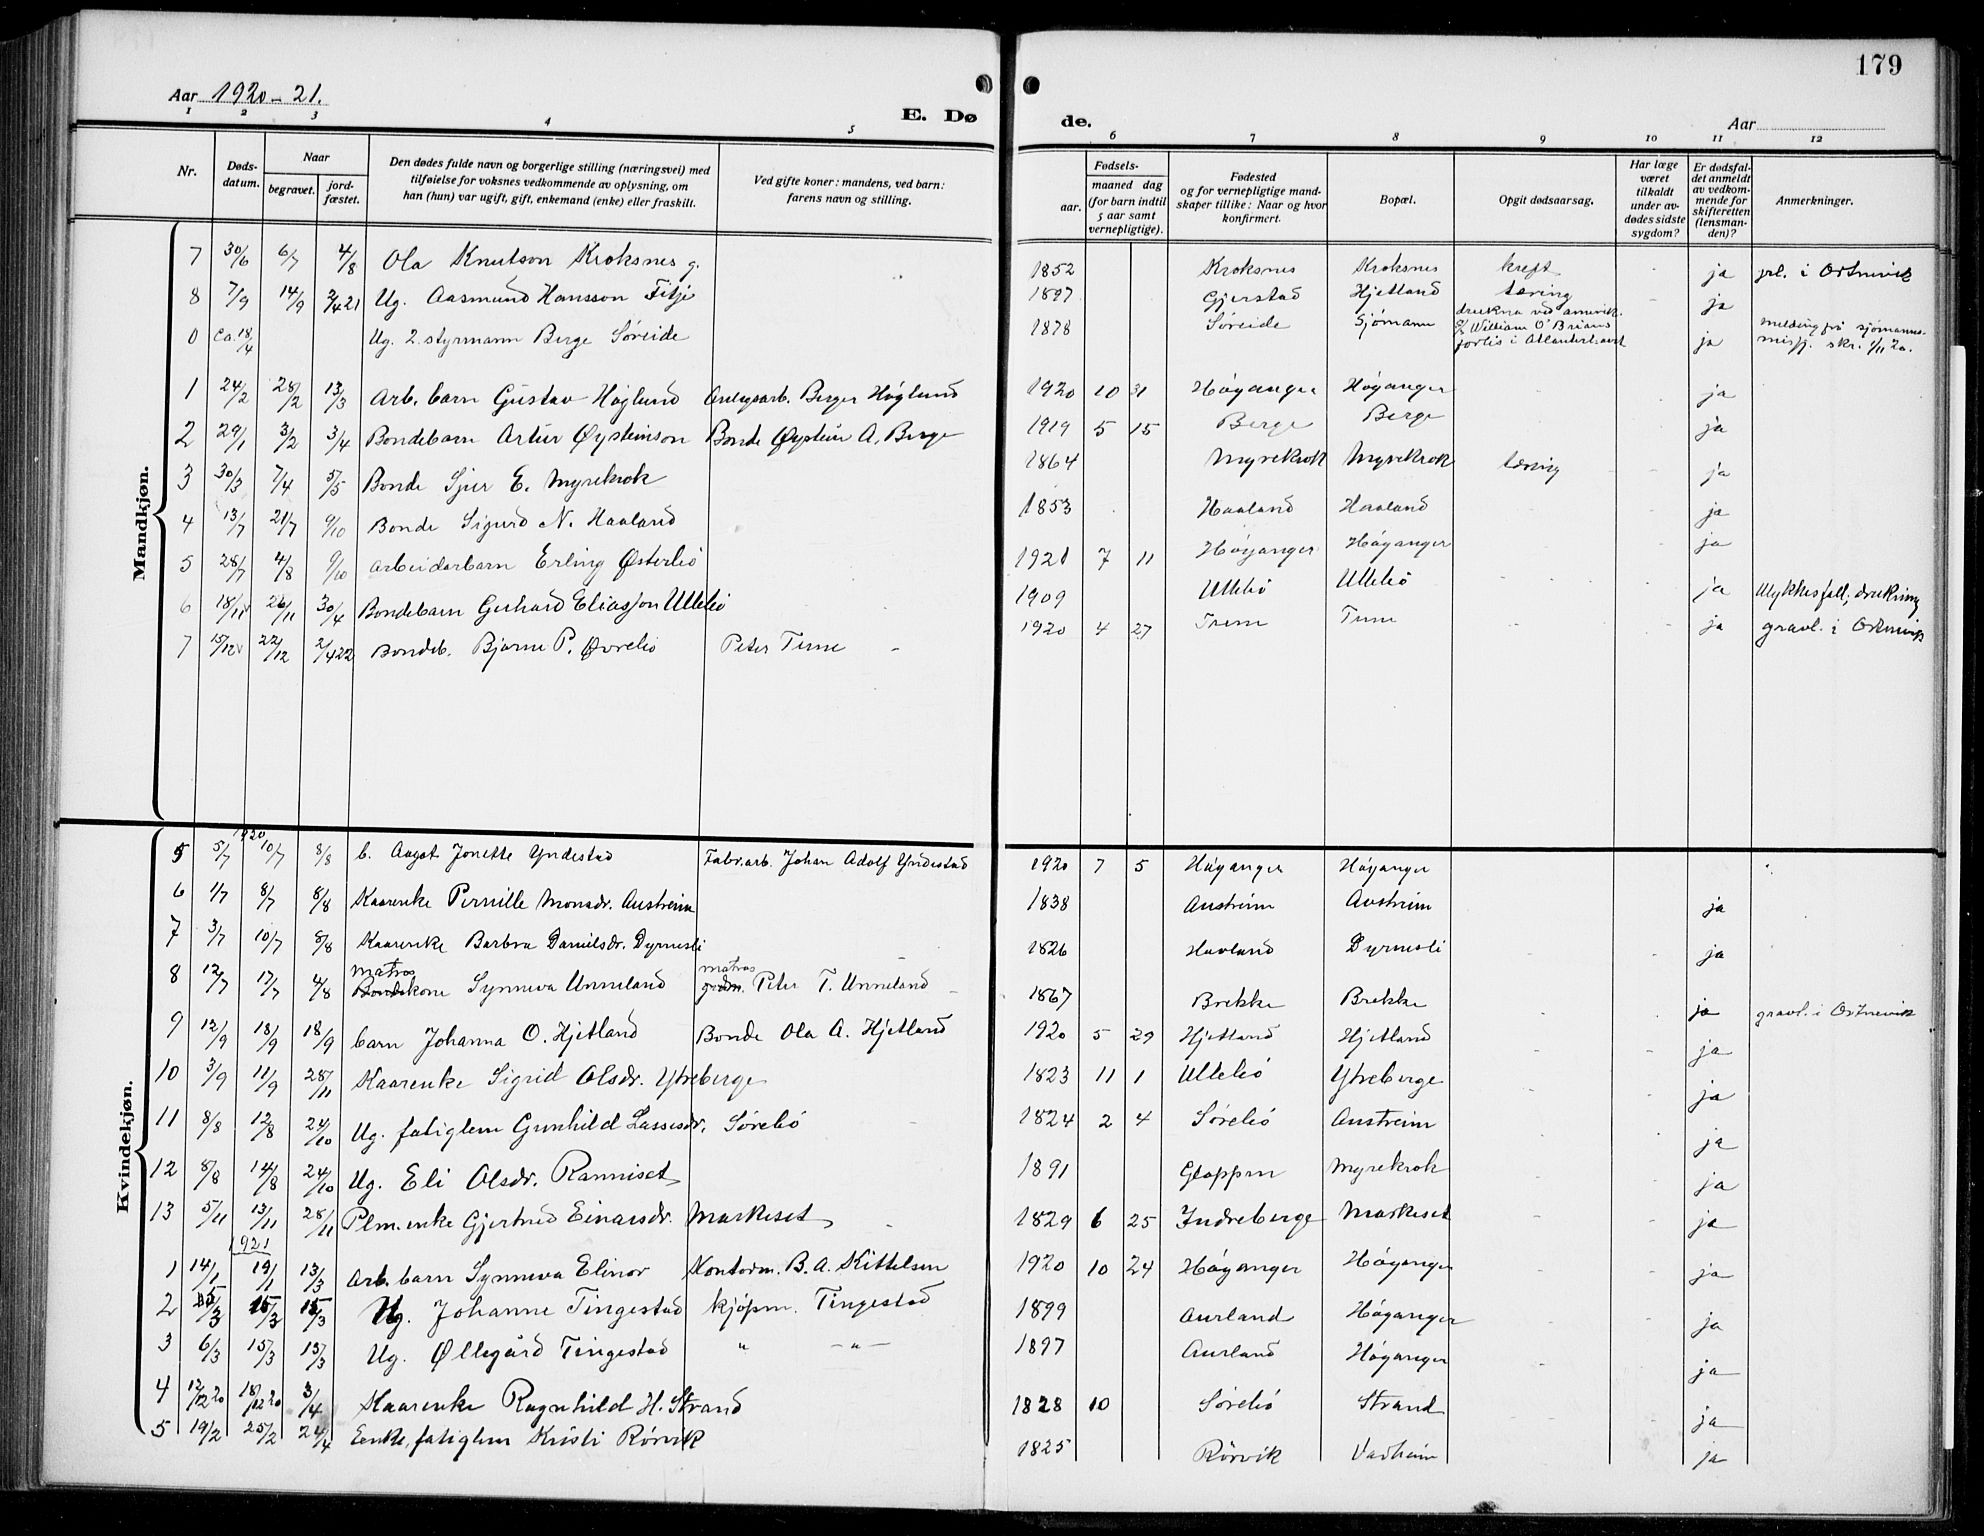 179
Aar 1920-21.
E. Dø
de.
Aar
1 2 3 4 5 6 7 8 9 10 11 12
Nr.
Døds-
datum.
Naar
begravet.
jord-
fæstet.
Den dødes fulde navn og borgerlige stilling (næringsvei) med
tilføielse for voksnes vedkommende av oplysning, om
han (hun) var ugift, gift, enkemand (enke) eller fraskilt.
Ved gifte koner: mandens, ved barn:
farens navn og stilling.
Fødsels-
aar.
maaned dag
(for barn indtil
5 aar samt
vernepligtige).
Fødested
og for vernepligtige mand-
skaper tillike: Naar og hvor
konfirmert.
Bopæl.
Opgit dødsaarsag.
Har læge
været
tilkaldt
under av-
dødes sidste
sygdom?
Er dødsfal-
det anmeldt
av vedkom-
mende for
skifteretten
(lensman-
den)?
Anmerkninger.
Mandkjøn.
7 30/6 6/7 4/8 Ola Knutson Kroksnes g. 1852 Kroksnes Kroksnes kreft ja i Ortnevik
8 7/9 14/9 2/4 21 Ug. Aasmund Hansson Fitje 1897 Gjerstad Hjetland tæring ja
0 Ca. 18/4 Ug. 2. styrmann Berge Søreide 1878 Søreide Sjømann drukna ved amerik. William O'Briens forlis i Atlanterhavet ja melding frå sjømanns- misj. skr. 1/11 20.
1 24/2 28/2 13/3 Arb. barn Gustav Høglund Anlegsarb. Berger Høglund 1920 10 31 Høyanger Høyanger ja
2 29/1 3/2 3/4 Bondebarn Artur Øysteinson Bonde Øystein A. Berge 1919 5 15 Berge Berge ja
3 30/3 7/4 5/5 Bonde Sjur E. Myrekrok 1864 Myrekrok Myrekrok tæring ja
4 13/7 21/7 9/10 Bonde Sigurd N. Haaland 1853 Haaland Haaland ja
5 28/7 4/8 9/10 Arbeidarbarn Erling Østerbø 1921 7 11 Høyanger Høyanger ja
6 18/11 26/11 30/4 Bondebarn Gerhard Eliasson Ullebø 1909 Ullebø Ullebø ja Ulykkesfall, drukning
7 15/12 22/12 2/4 22 Bondeb. Bjarne P. Øvrebø Peter Tune 1920 4 27 Tune Tune ja gravl. i Ortnevik
Kvindekjøn.
1920
5 5/7 10/7 8/8 b. Aagot Jonette Yndestad Fabr.arb. Johan Adolf Yndestad 1920 7 5 Høyanger Høyanger
6 1/7 8/7 8/8 Kaarenke Pernille Monsdr. Austreim 1838 Austreim Austreim ja
7 3/7 10/7 8/8 Kaarenke Barbra Danielsdr. Dyrnesli 1826 Haaland Dyrnesli ja
8 12/7 17/7 4/8 matros Bondekone Synneva Unneland matros Peter T. Unneland 1867 Brekke Brekke ja gravl. i Ortnevik
9 12/9 18/9 18/9 barn Johanna O. Hjetland Bonde Ola A. Hjetland 1920 5 29 Hjetland Hjetland ja
10 3/9 11/9 28/11 Kaarenke Sigrid Olsdr. Ytreberge 1823 11 1 Ullebø Ytreberge ja
11 8/8 12/8 24/10 Ug. fatiglem Gunhild Lassesdr. Sørebø 1824 2 4 Sørebø Austreim ja
12 8/8 14/8 24/10 Ug. Eli Olsdr. Ramniset 1891 Gloppen Myrekrok ja
13 5/11 13/11 28/11 Plm. enke Gjertrud Einarsdr. Maskeset 1829 6 25 Indreberge Maskeset ja
1921
1 14/1 19/1 13/3 Arb. barn Synneva Elinor Kontorm. B. A. Kittelsen 1920 10 24 Høyanger Høyanger ja
2 15/3 15/3 Ug. Johanne Tingestad kjøpm. Tingestad 1899 Aurland Høyanger ja
3 6/3 15/3 15/3 Ug. Øllegård Tingestad " -"- 1897 Aurland Høyanger ja
4 12/12 20 18/12 20 3/4 Kaarenke Ragnhild H. Strand 1828 10 Sørebø Strand ja
5 19/2 25/2 24/4 Enke, fatiglem Kristi Rørvik 1825 Rørvik Vadheim ja